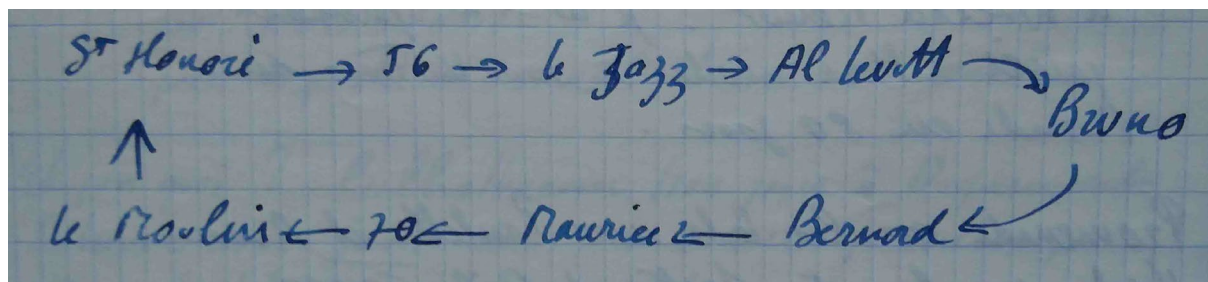 St Honoré → 56 → le Jazz → Al Levitt
Bruno
le Moulin ← 70 ← Maurice ← Bernard ←